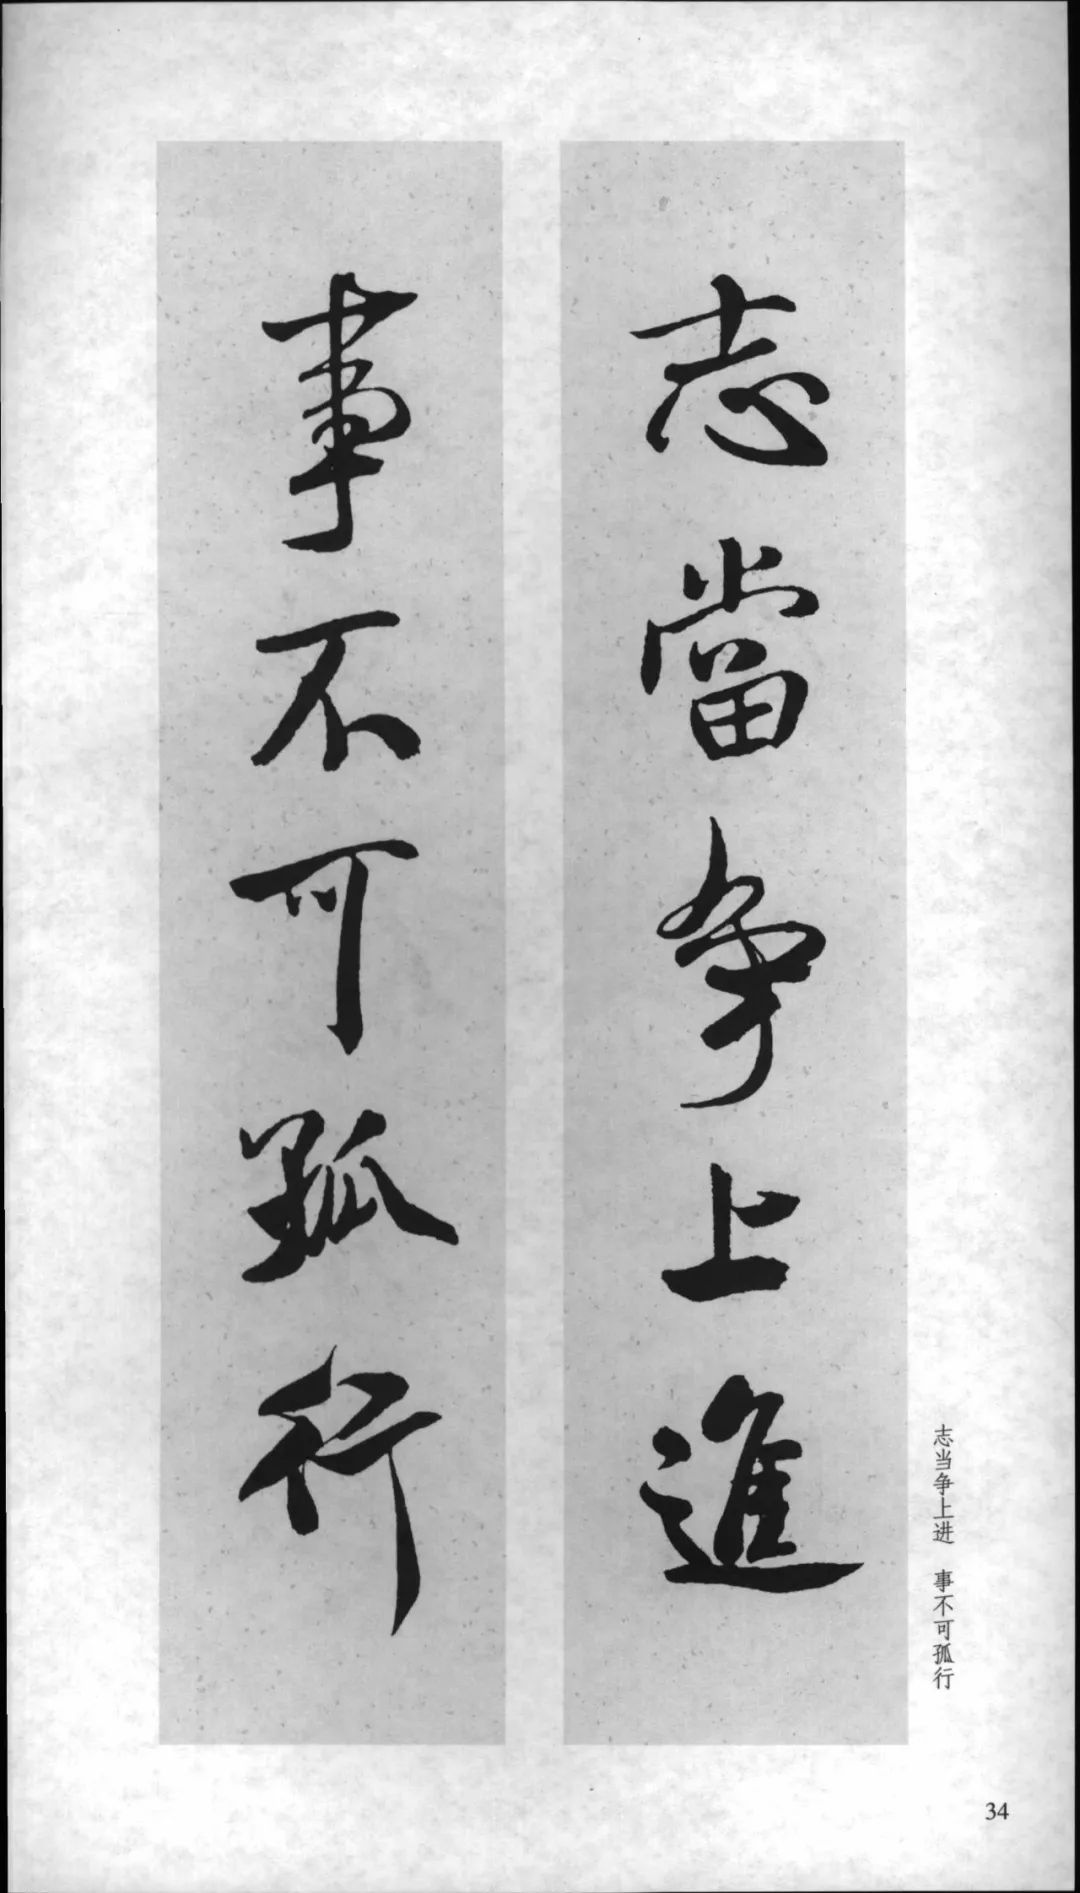 志當争上進
事不可孤行
志当争上进　事不可孤行
34